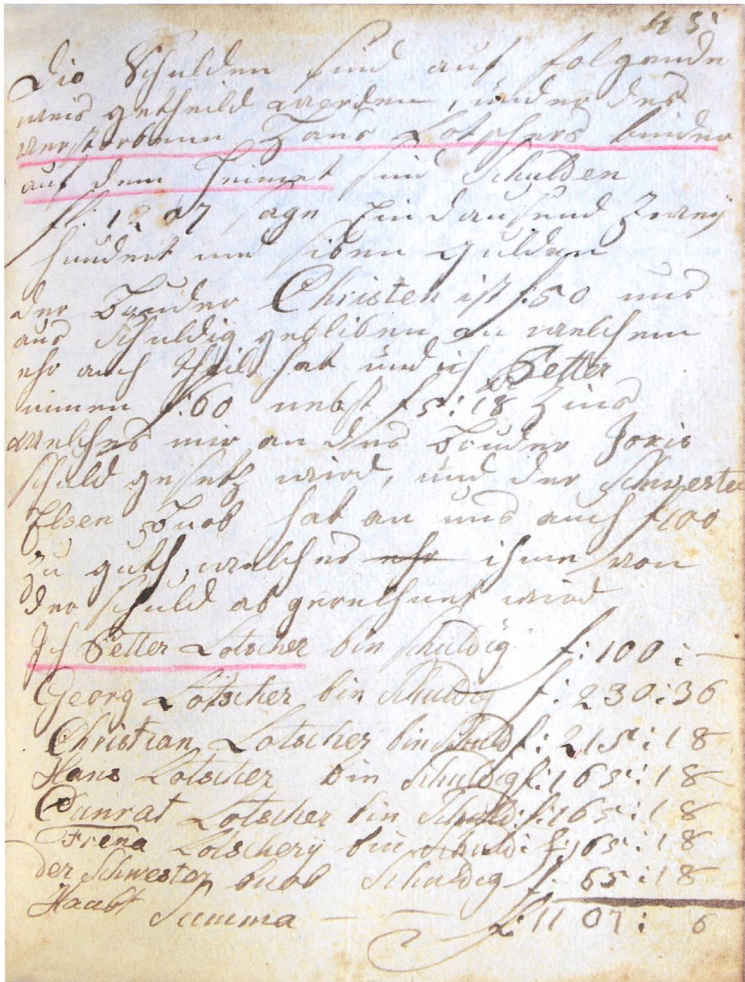 Die Schulden sind auf folgende
weis getheild worden, under des
verstorbenen Hans Lotschers kinder
auf dem Heimet sind Schulden
f: 1207 sage Ein dausend Zwey
hundert und siben gulden
der Bruder Christen ist f:50 uns
aus schuldig gebliben an welchem
ehr auch theil hat und ich Petter
nimen f:60 nebst f5:18 Zins
welches mir an des Bruder Joris
schuld gesetz wird, und der Schwester
Elsen Buob hat an uns auch f100
Zu guth, welches ehr ihme von
der schuld ab gerechnet wird
Ich Petter Lotscher bin schuldig f:100:—
Georg Lotscher bin schuldig f:230:36
Christian Lotscher bin Schuld f:215:18
Hans Lotscher bin Schuldig f:165:18
Cunrat Lotscher bin Schuld: f:165:18
Frena Lotschery bin schuld: f:165:18
der Schwester buob Schuldig f:65:18
Haabt Summa — — f:1107:6